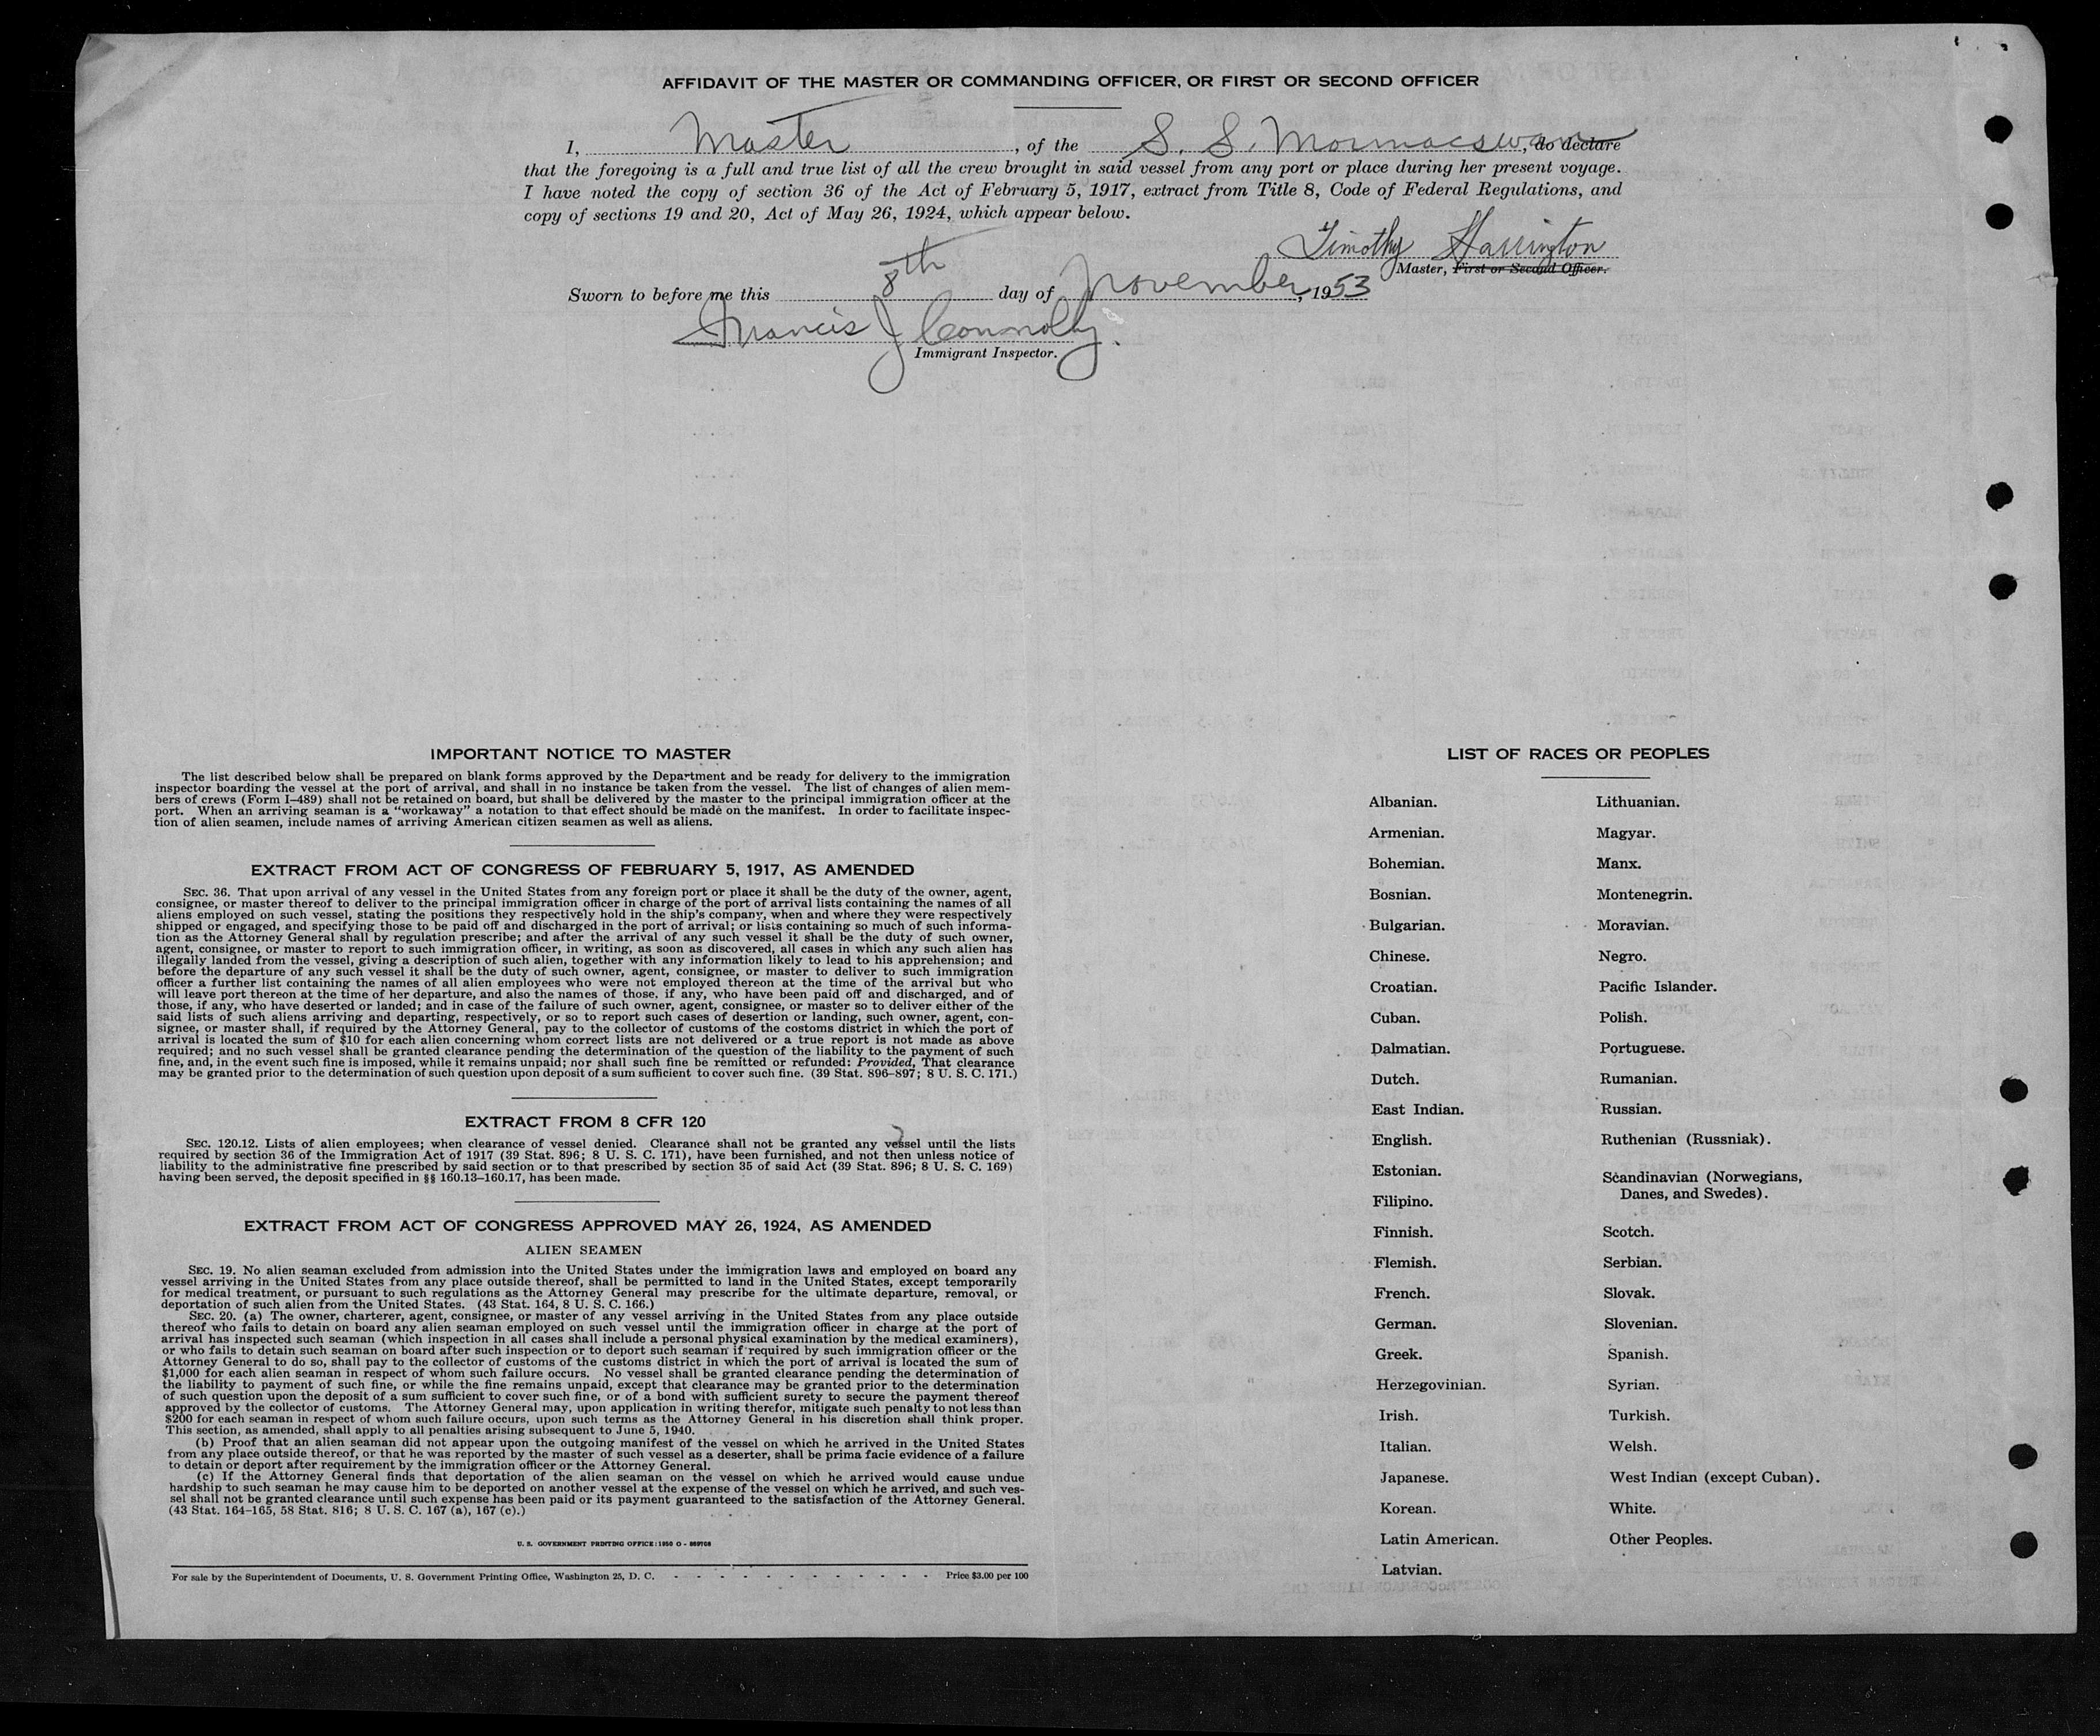 AFFIDAVIT OF THE MASTER OR COMMANDING OFFICER, OR FIRST OR SECOND OFFICER
I, Master, of the S. S. Mormacswan, do declare
that the foregoing is a full and true list of all the crew brought in said vessel from any port or place during her present voyage.
I have noted the copy of section 36 of the Act of February 5, 1917, extract from Title 8, Code of Federal Regulations, and
copy of sections 19 and 20, Act of May 26, 1924, which appear below.
Timothy Harrington
Master, First or Second Officer.
Sworn to before me this 8th day of November, 1953
Francis J Connolly.
Immigrant Inspector.
IMPORTANT NOTICE TO MASTER
The list described below shall be prepared on blank forms approved by the Department and be ready for delivery to the immigration
inspector boarding the vessel at the port of arrival, and shall in no instance be taken from the vessel. The list of changes of alien mem-
bers of crews (Form I-489) shall not be retained on board, but shall be delivered by the master to the principal immigration officer at the
port. When an arriving seaman is a "workaway" a notation to that effect should be made on the manifest. In order to facilitate inspec-
tion of alien seamen, include names of arriving American citizen seamen as well as aliens.
EXTRACT FROM ACT OF CONGRESS OF FEBRUARY 5, 1917, AS AMENDED
SEC. 36. That upon arrival of any vessel in the United States from any foreign port or place it shall be the duty of the owner, agent,
consignee, or master thereof to deliver to the principal immigration officer in charge of the port of arrival lists containing the names of all
aliens employed on such vessel, stating the positions they respectively hold in the ship's company, when and where they were respectively
shipped or engaged, and specifying those to be paid off and discharged in the port of arrival; or lists containing so much of such informa-
tion as the Attorney General shall by regulation prescribe; and after the arrival of any such vessel it shall be the duty of such owner,
agent, consignee, or master to report to such immigration officer, in writing, as soon as discovered, all cases in which any such alien has
illegally landed from the vessel, giving a description of such alien, together with any information likely to lead to his apprehension; and
before the departure of any such vessel it shall be the duty of such owner, agent, consignee, or master to deliver to such immigration
officer a further list containing the names of all alien employees who were not employed thereon at the time of the arrival but who
will leave port thereon at the time of her departure, and also the names of those, if any, who have been paid off and discharged, and of
those, if any, who have deserted or landed; and in case of the failure of such owner, agent, consignee, or master so to deliver either of the
said lists of such aliens arriving and departing, respectively, or so to report such cases of desertion or landing, such owner, agent, con-
signee, or master shall, if required by the Attorney General, pay to the collector of customs of the costoms district in which the port of
arrival is located the sum of $10 for each alien concerning whom correct lists are not delivered or a true report is not made as above
required; and no such vessel shall be granted clearance pending the determination of the question of the liability to the payment of such
fine, and, in the event such fine is imposed, while it remains unpaid; nor shall such fine be remitted or refunded: Provided, That clearance
may be granted prior to the determination of such question upon deposit of a sum sufficient to cover such fine. (39 Stat. 896-897; 8 U. S. C. 171.)
EXTRACT FROM 8 CFR 120
SEC. 120.12. Lists of alien employees; when clearance of vessel denied. Clearance shall not be granted any vessel until the lists
required by section 36 of the Immigration Act of 1917 (39 Stat. 896; 8 U. S. C. 171), have been furnished, and not then unless notice of
liability to the administrative fine prescribed by said section or to that prescribed by section 35 of said Act (39 Stat. 896; 8 U. S. C. 169)
having been served, the deposit specified in §§ 160.13-160.17, has been made.
EXTRACT FROM ACT OF CONGRESS APPROVED MAY 26, 1924, AS AMENDED
ALIEN SEAMEN
SEC. 19. No alien seaman excluded from admission into the United States under the immigration laws and employed on board any
vessel arriving in the United States from any place outside thereof, shall be permitted to land in the United States, except temporarily
for medical treatment, or pursuant to such regulations as the Attorney General may prescribe for the ultimate departure, removal, or
deportation of such alien from the United States. (43 Stat. 164, 8 U. S. C. 166.)
SEC. 20. (a) The owner, charterer, agent, consignee, or master of any vessel arriving in the United States from any place outside
thereof who fails to detain on board any alien seaman employed on such vessel until the immigration officer in charge at the port of
arrival has inspected such seaman (which inspection in all cases shall include a personal physical examination by the medical examiners),
or who fails to detain such seaman on board after such inspection or to deport such seaman if required by such immigration officer or the
Attorney General to do so, shall pay to the collector of customs of the customs district in which the port of arrival is located the sum of
$1,000 for each alien seaman in respect of whom such failure occurs. No vessel shall be granted clearance pending the determination of
the liability to payment of such fine, or while the fine remains unpaid, except that clearance may be granted prior to the determination
of such question upon the deposit of a sum sufficient to cover such fine, or of a bond with sufficient surety to secure the payment thereof
approved by the collector of customs. The Attorney General may, upon application in writing therefor, mitigate such penalty to not less than
$200 for each seaman in respect of whom such failure occurs, upon such terms as the Attorney General in his discretion shall think proper.
This section, as amended, shall apply to all penalties arising subsequent to June 5, 1940.
(b) Proof that an alien seaman did not appear upon the outgoing manifest of the vessel on which he arrived in the United States
from any place outside thereof, or that he was reported by the master of such vessel as a deserter, shall be prima facie evidence of a failure
to detain or deport after requirement by the immigration officer or the Attorney General.
(c) If the Attorney General finds that deportation of the alien seaman on the vessel on which he arrived would cause undue
hardship to such seaman he may cause him to be deported on another vessel at the expense of the vessel on which he arrived, and such ves-
sel shall not be granted clearance until such expense has been paid or its payment guaranteed to the satisfaction of the Attorney General.
(43 Stat. 164-165, 58 Stat. 816; 8 U. S. C. 167 (a), 167 (c).)
U. S. GOVERNMENT PRINTING OFFICE: 1950 O - 889708
For sale by the Superintendent of Documents, U. S. Government Printing Office, Washington 25, D. C. - - - - - - - - - - - - Price $3.00 per 100
LIST OF RACES OR PEOPLES
Albanian.
Armenian.
Bohemian.
Bosnian.
Bulgarian.
Chinese.
Croatian.
Cuban.
Dalmatian.
Dutch.
East Indian.
English.
Estonian.
Filipino.
Finnish.
Flemish.
French.
German.
Greek.
Herzegovinian.
Irish.
Italian.
Japanese.
Korean.
Latin American.
Latvian.
Lithuanian.
Magyar.
Manx.
Montenegrin.
Moravian.
Negro.
Pacific Islander.
Polish.
Portuguese.
Rumanian.
Russian.
Ruthenian (Russniak).
Scandinavian (Norwegians,
Danes, and Swedes).
Scotch.
Serbian.
Slovak.
Slovenian.
Spanish.
Syrian.
Turkish.
Welsh.
West Indian (except Cuban).
White.
Other Peoples.